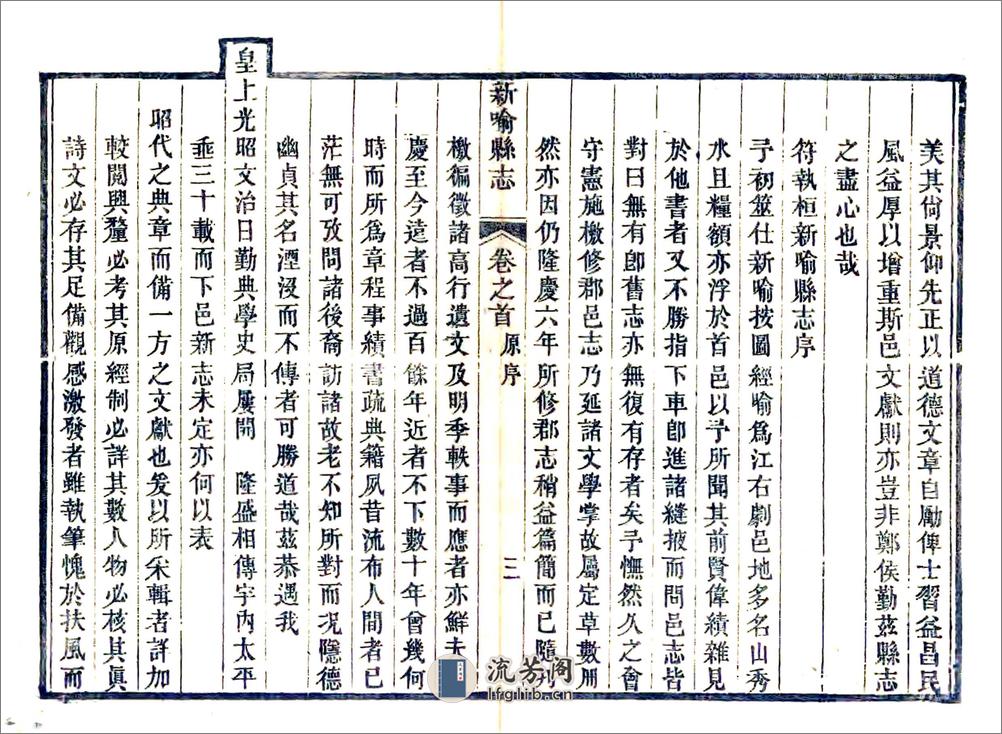 美其尙景仰先正以道德文章自勵俾士習益昌民
風益厚以增重斯邑文獻則亦豈非鄭侯勤茲縣志
之盡心也哉
符執桓新喻縣志序
予初筮仕新喻按圖經喻爲江右劇邑地多名山秀
水且糧額亦浮於首邑以予所聞其前賢偉績雜見
於他書者又不勝指下車卽進諸縫掖而問邑志皆
對曰無有卽舊志亦無復有存者矣予憮然久之會
守憲施檄修郡志乃延諸文學掌故屬定草數册
然亦因仍隆慶六年所修郡志稍益篇簡而已隨
新喻縣志
卷之首
原序
三
檄徧徵諸高行遺文及明季軼事而應者亦鮮夫
慶至今遠者不過百餘年近者不下數十年曾幾何
時而所爲章程事績書疏典籍夙昔流布人間者已
茫無可攷問諸後裔訪諸故老不知所對而況隱德
幽貞其名湮沒而不傳者可勝道哉茲恭遇我
皇上光昭文治日勤典學史局屢開 隆盛相傳宇內太平
垂三十載而下邑新志未定亦何以表
昭代之典章而備一方之文獻也爰以所采輯者詳加
較閱輿釐必考其原經制必詳其數人物必核其眞
詩文必存其足備觀感激發者雖執筆愧於扶風而
流芳阁
lfglib.cn